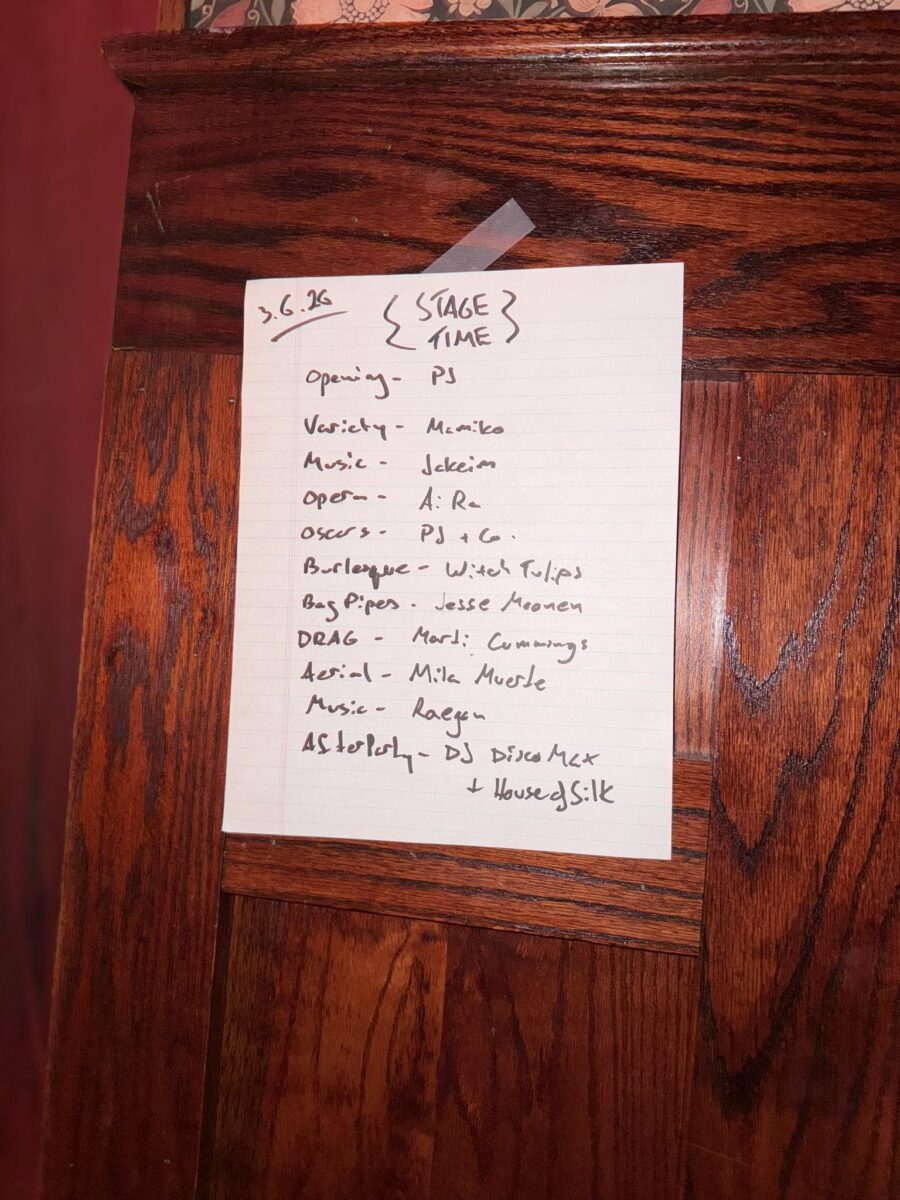 3.6.26
{ STAGE
TIME }
Opening - PJ
Variety - Mamiko
Music - Jakeim
Opera - Ai Ra
Oscars - PJ + Co.
Burlesque - Witch Tulips
Bag Pipes - Jesse Moonen
DRAG - Marti Cummings
Aerial - Mila Muerte
Music - Raegan
AfterParty - DJ Disco Max
+ House of Silk